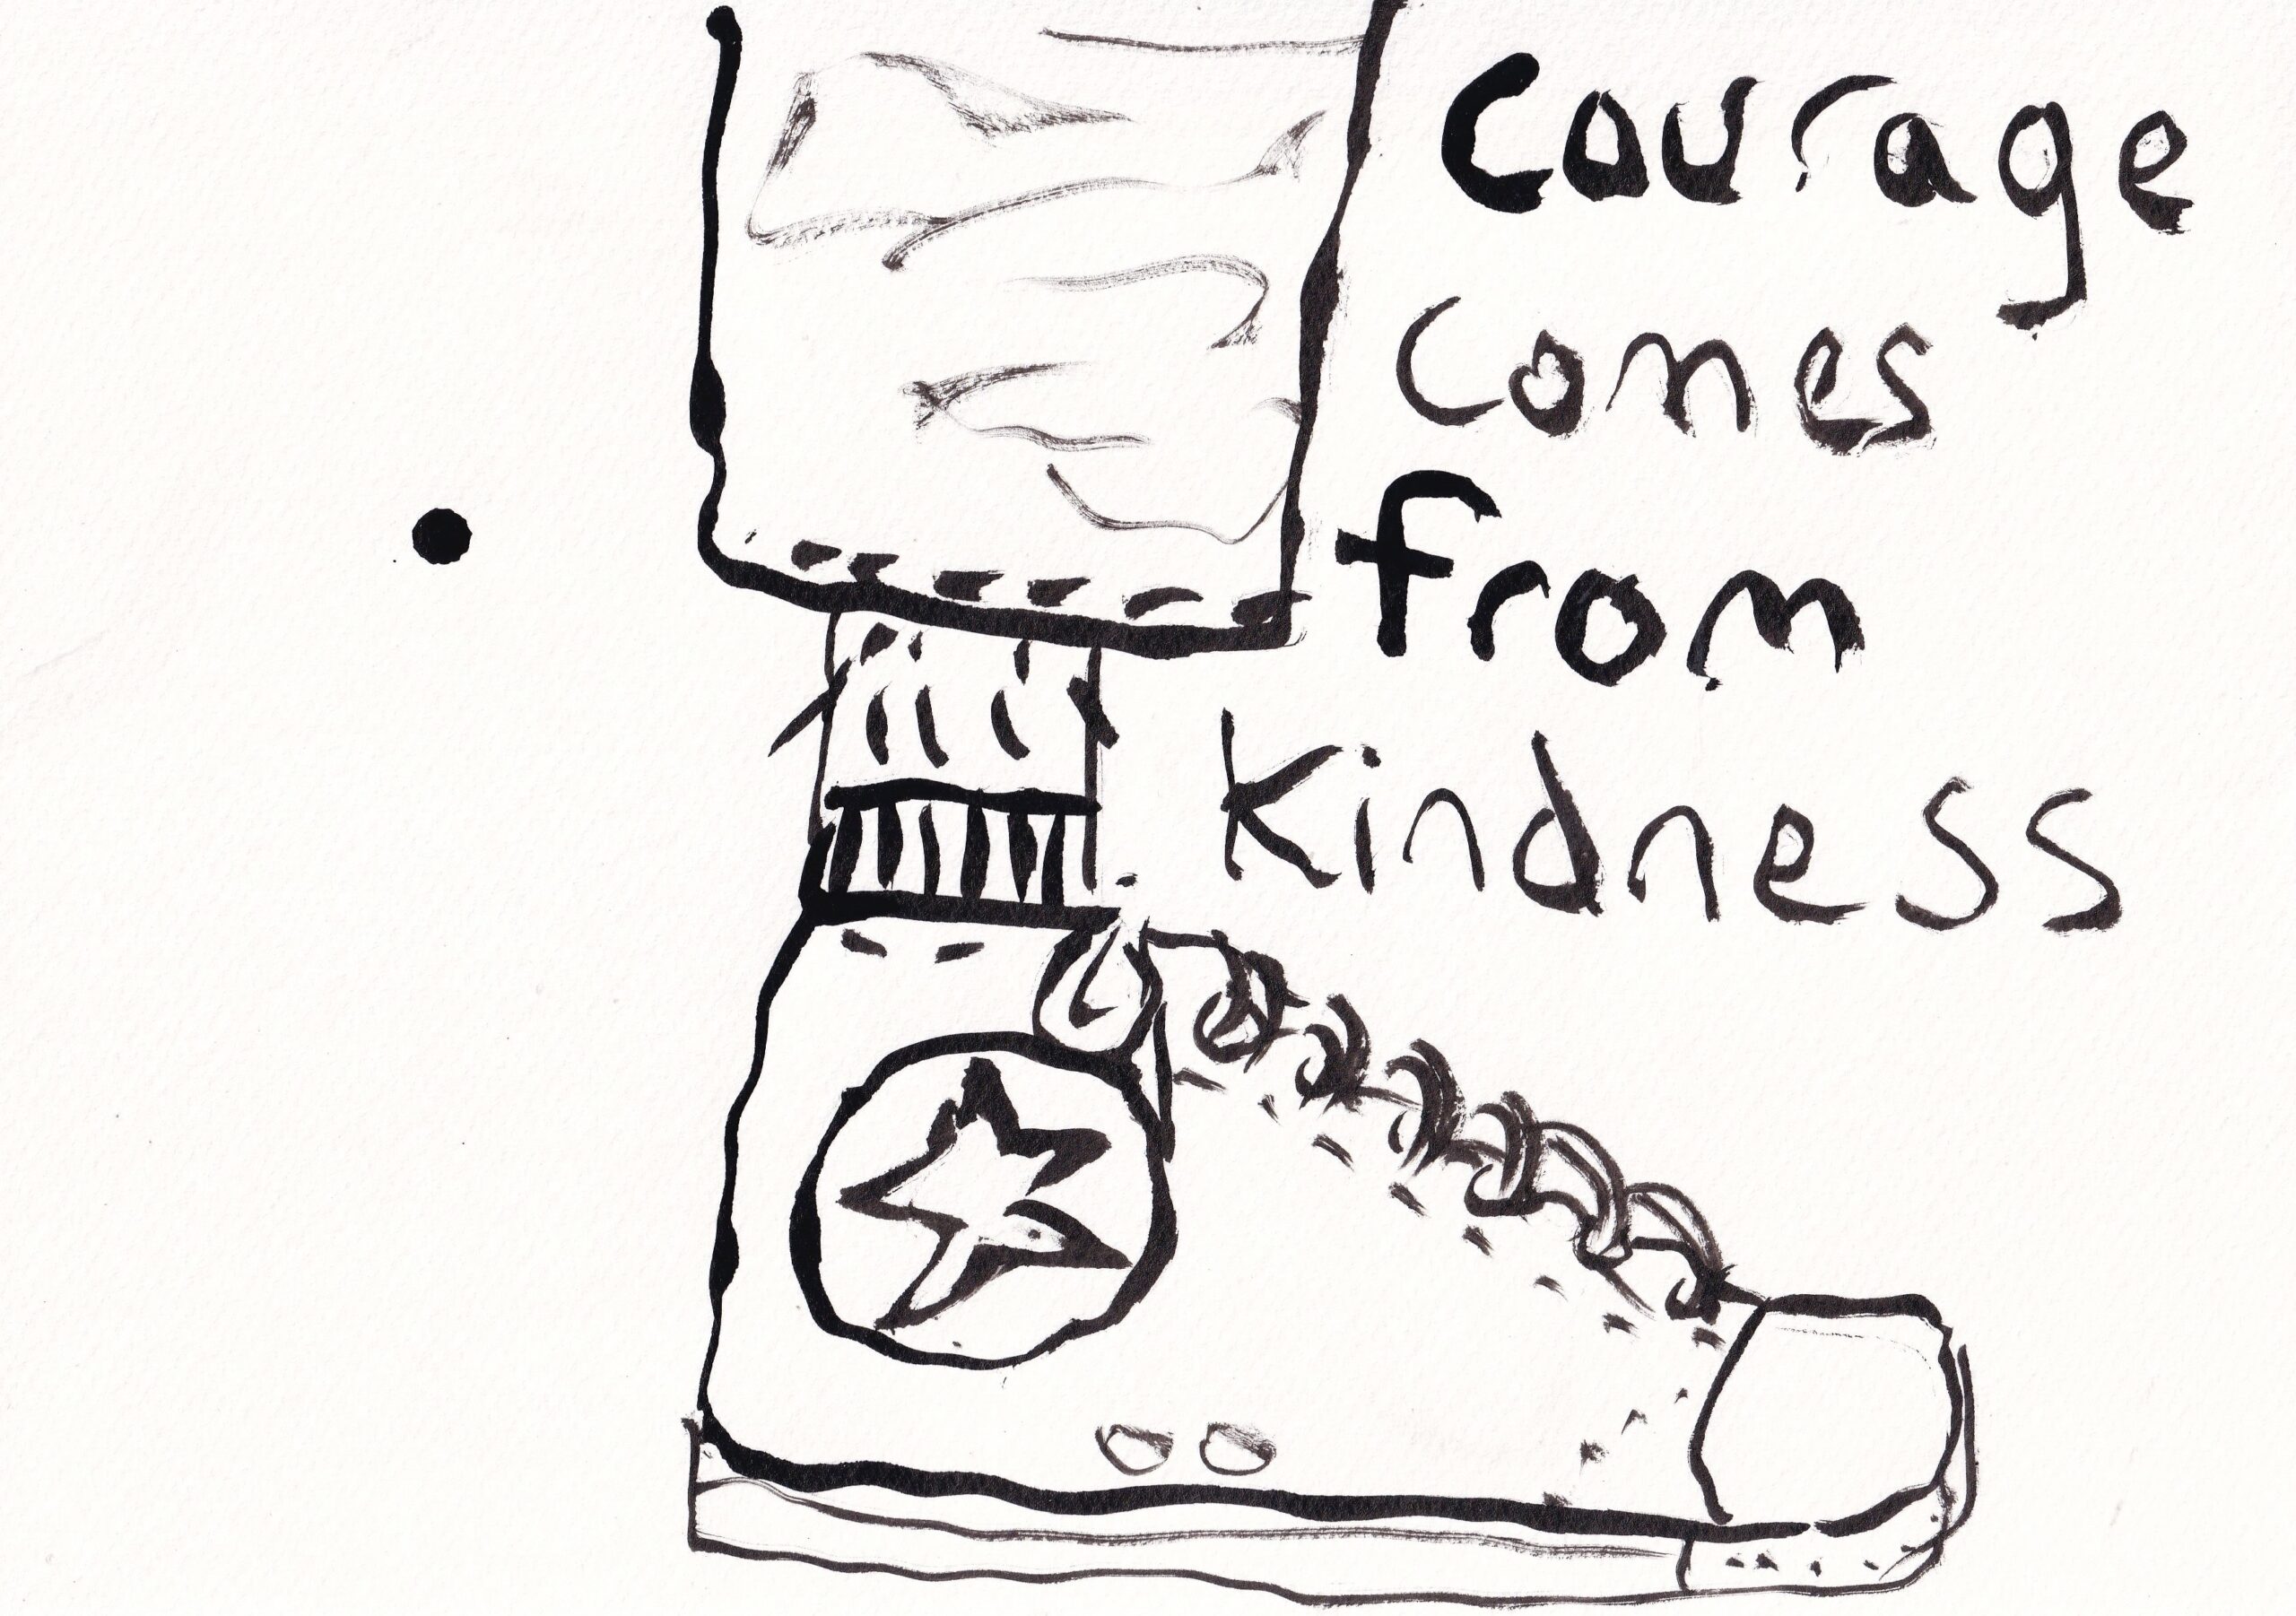 Courage
comes
from
kindness